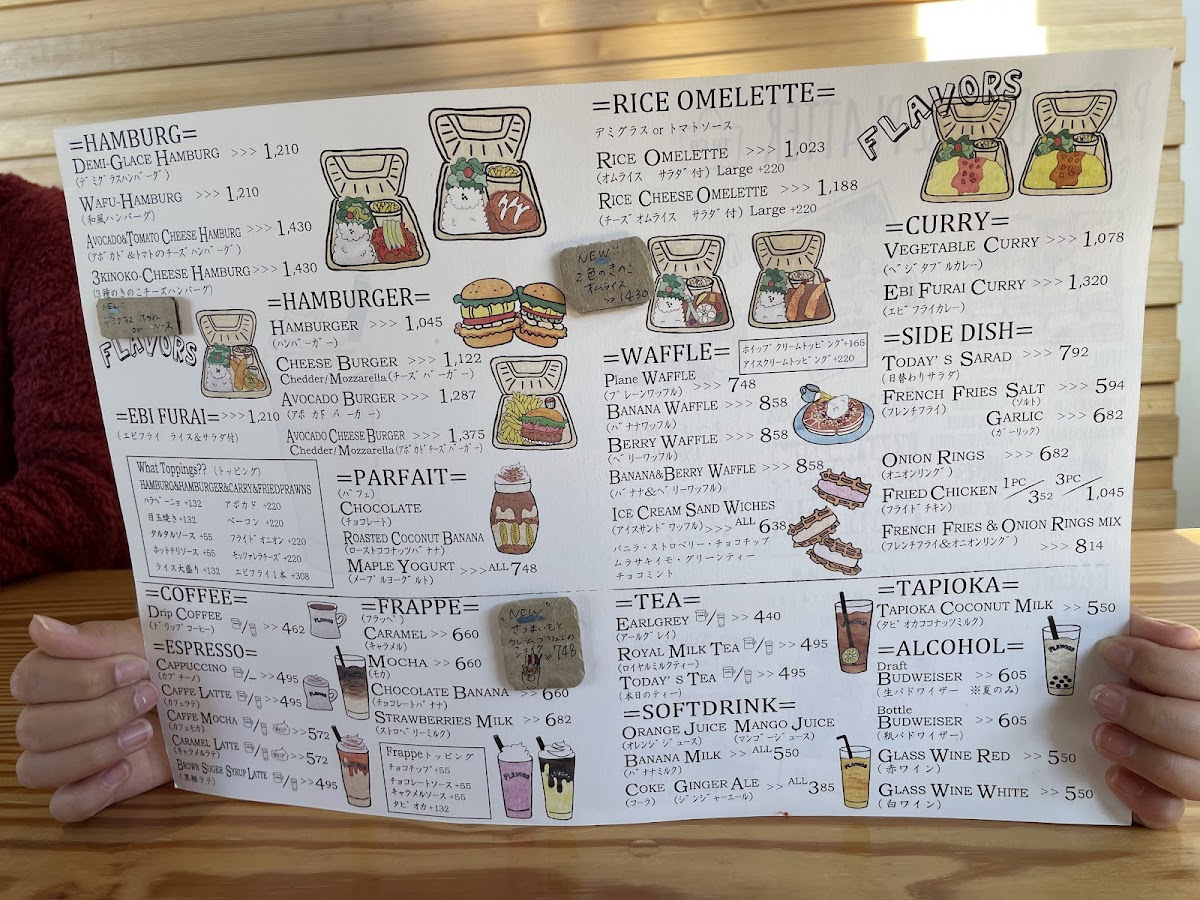 =HAMBURG=
DEMI-GLACE HAMBURG >>> 1,210
(デミグラスハンバーグ)
WAFU-HAMBURG >>> 1,210
(和風ハンバーグ)
AVOCADO&TOMATO CHEESE HAMBURG >>> 1,430
(アボカド&トマトのチーズハンバーグ)
3KINOKO-CHEESE HAMBURG >>> 1,430
(3種のきのこチーズハンバーグ)
NEW
FLAVORS
=EBI FURAI= >>> 1,210
(エビフライ ライス&サラダ付)
What Toppings?? (トッピング)
HAMBURG&HAMBURGER&CARRY&FRIEDPRAWNS
ハラペーニョ +132 アボカド +220
目玉焼き +132 ベーコン +220
タルタルソース +55 フライドオニオン +220
ホットチリソース +55 モッツァレラチーズ +220
ライス大盛り +132 エビフライ1本 +308
=HAMBURGER=
HAMBURGER >>> 1,045
(ハンバーガー)
CHEESE BURGER >>> 1,122
Chedder/Mozzarella (チーズバーガー)
AVOCADO BURGER >>> 1,287
(アボカドバーカー)
AVOCADO CHEESE BURGER >>> 1,375
Chedder/Mozzarella (アボカドチーズバーガー)
=PARFAIT=
(パフェ)
CHOCOLATE
(チョコレート)
ROASTED COCONUT BANANA
(ローストココナッツバナナ)
MAPLE YOGURT >>> ALL 748
(メープルヨーグルト)
=RICE OMELETTE=
デミグラス or トマトソース
RICE OMELETTE >>> 1,023
(オムライス サラダ付) Large +220
RICE CHEESE OMELETTE >>> 1,188
(チーズオムライス サラダ付) Large +220
FLAVORS
NEW
2色のきのこ
オムライス
>> 1430
=WAFFLE=
ホイップクリームトッピング+165
アイスクリームトッピング+220
PLANE WAFFLE >>> 748
(プレーンワッフル)
BANANA WAFFLE >>> 858
(バナナワッフル)
BERRY WAFFLE >>> 858
(ベリーワッフル)
BANANA&BERRY WAFFLE >>> 858
(バナナ&ベリーワッフル)
ICE CREAM SAND WICHES
(アイスサンドワッフル) >>> ALL 638
バニラ・ストロベリー・チョコチップ
ムラサキイモ・グリーンティー
チョコミント
=CURRY=
VEGETABLE CURRY >>> 1,078
(ベジタブルカレー)
EBI FURAI CURRY >>> 1,320
(エビフライカレー)
=SIDE DISH=
TODAY'S SARAD >>> 792
(日替わりサラダ)
FRENCH FRIES SALT >>> 594
(フレンチフライ) (ソルト)
GARLIC >>> 682
(ガーリック)
ONION RINGS >>> 682
(オニオンリング)
FRIED CHICKEN 1PC/352 3PC/1,045
(フライドチキン)
FRENCH FRIES & ONION RINGS MIX
(フレンチフライ&オニオンリング)
>>> 814
=COFFEE=
DRIP COFFEE >>> 462
(ドリップコーヒー)
=ESPRESSO=
CAPPUCCINO >>> 495
(カプチーノ)
CAFFE LATTE >>> 495
(カフェラテ)
CAFFE MOCHA >>> 572
(カフェモカ)
CARAMEL LATTE >>> 572
(キャラメルラテ)
BROWN SUGER SYRUP LATTE >>> 495
(黒糖ラテ)
=FRAPPE=
(フラッペ)
CARAMEL >> 660
(キャラメル)
MOCHA >> 660
(モカ)
CHOCOLATE BANANA >> 660
(チョコレートバナナ)
STRAWBERRIES MILK >> 682
(ストロベリーミルク)
NEW
さつまいもと
クレームブリュレの
シェイク
>> 748
Frappe トッピング
チョコチップ +55
チョコレートソース +55
キャラメルソース +55
タピオカ +132
FLAVORS
FLAVORS
=TEA=
EARLGREY >> 440
(アールグレイ)
ROYAL MILK TEA >> 495
(ロイヤルミルクティー)
TODAY'S TEA >> 495
(本日のティー)
=SOFTDRINK=
ORANGE JUICE MANGO JUICE
(オレンジジュース) (マンゴージュース)
BANANA MILK >> ALL 550
(バナナミルク)
COKE GINGER ALE >> ALL 385
(コーラ) (ジンジャーエール)
=TAPIOKA=
TAPIOKA COCONUT MILK >> 550
(タピオカココナッツミルク)
=ALCOHOL=
Draft
BUDWEISER >> 605
(生バドワイザー ※夏のみ)
Bottle
BUDWEISER >> 605
(瓶バドワイザー)
GLASS WINE RED >> 550
(赤ワイン)
GLASS WINE WHITE >> 550
(白ワイン)